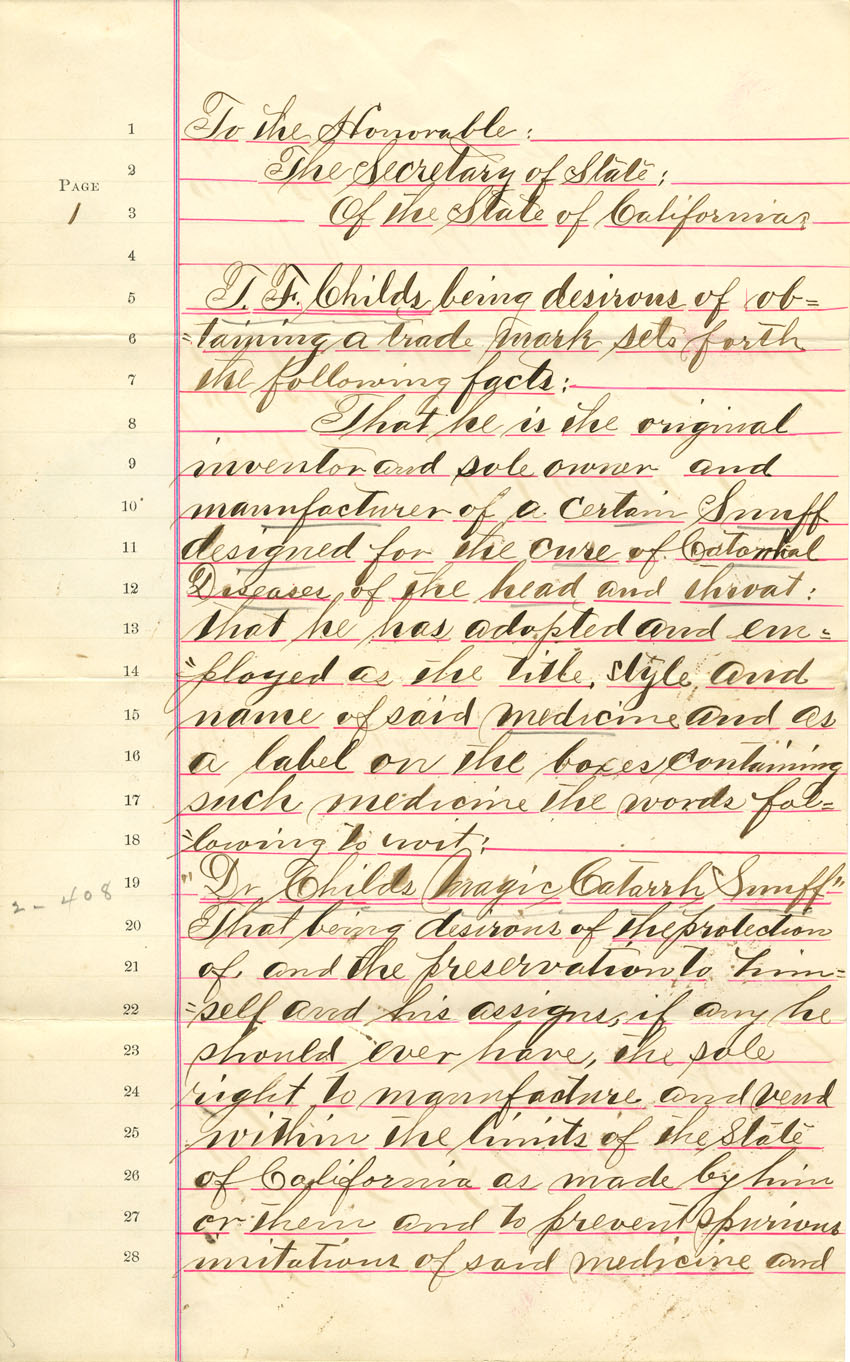 Page
1
1 To the Honorable:
2 The Secretary of State;
3 Of the State of California,
4
5 T. F. Childs being desirous of ob=
6 =taining a trade mark sets forth
7 the following facts;
8 That he is the original
9 inventor and sole owner and
10 manufacturer of a certain Snuff
11 designed for the cure of Catarrhal
12 Diseases of the head and throat:
13 that he has adopted and em=
14 =ployed as the title, style, and
15 name of said medicine and as
16 a label on the boxes containing
17 such medicine the words fol=
18 =lowing to wit;
19 "Dr Childs Magic Catarrh Snuff"
2-408
20 That being desirous of the protection
21 of, and the preservation to him=
22 =self and his assigns, if any he
23 should ever have, the sole
24 right to manufacture and vend
25 within the limits of the State
26 of California as made by him
27 or them and to prevent spurious
28 imitations of said medicine and